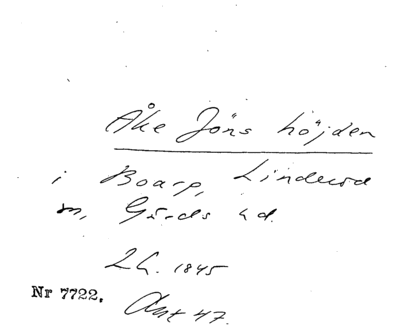 Åke Jöns höjden
i Boarp, Linderöd
sn, Gärds hd.
2 h. 1845
Nr 7722. Ant 47.